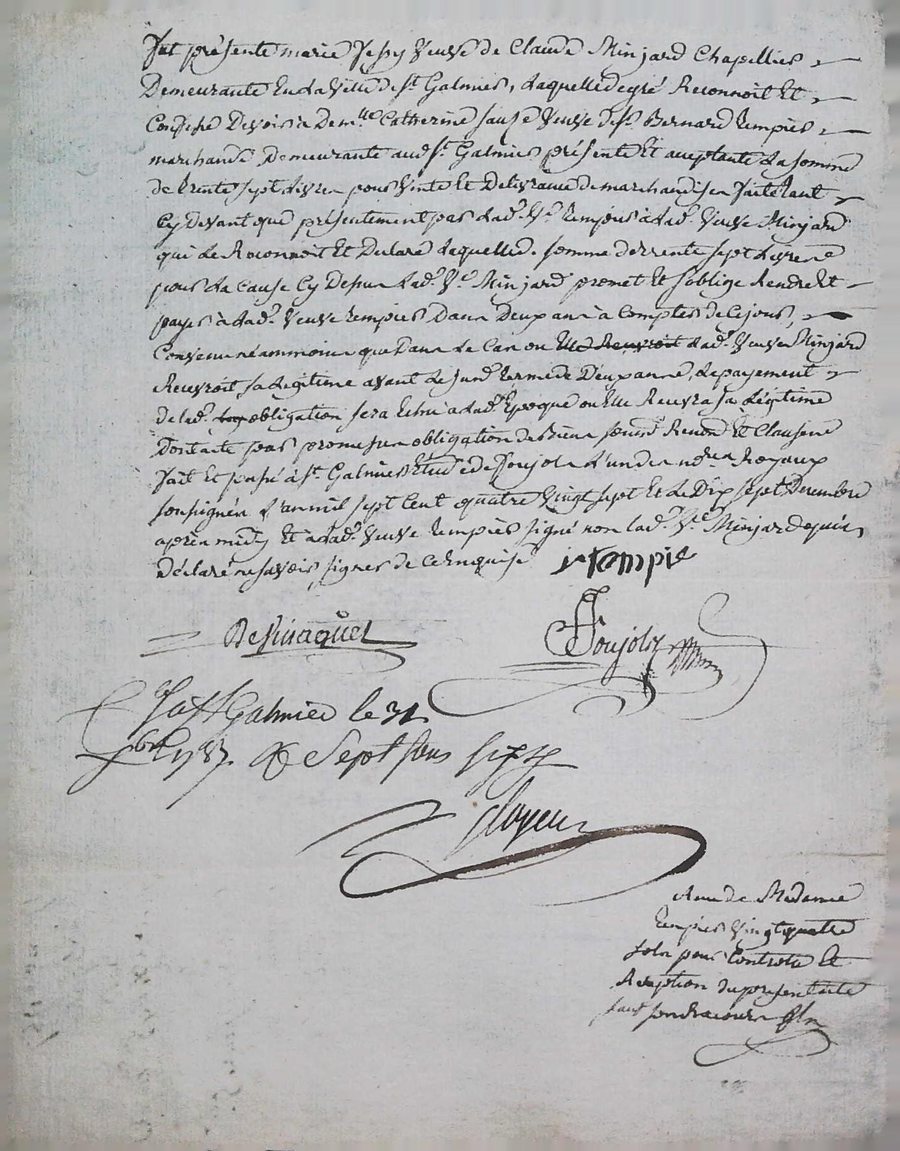 Fut présente marie Veuve de Claude Minjard Chapellier
Demeurante En La Ville de St. Galmier, Laquelle de gré Reconnoit Et
Confesse Devoir a Demlle Catherine Veuve de Sr. Bernard Tempier
marchande, Demeurante aud. St. Galmier présente Et acceptante La Somme
de trente Sept Livres pour Vente Et Délivrance de marchandises faite tant
Cy Devant que présentement par Lad. Ve. Tempier à Lad. Veuve Minjard
qui Le Reconnoit Et Déclare Laquelle d. Somme de trente Sept Livres
pour La Cause Cy Dessus Lad. Ve. Minjard promet Et S'oblige Rendre Et
payer à Lad. Veuve Tempier Dans Deux ans à Compter de Ce jour,
Convenu néammoins que Dans Le Cas ou Elle Recevroit Lad. Veuve Minjard
Recevroit Sa Légitime avant Le Susd. terme de Deux années, Le payement
de La d. obligation Sera Echu a Lad. Epoque ou Elle Recevra Sa Légitime
Dont acte par promesses obligation de Biens Soumd. Renond. Et Clauses
Fait Et passé à St. Galmier Etude de Poujols L'un des nores. Royaux
Soussignés L'an mil Sept Cent quatre Vingt Sept Et Le Dix Sept Decembre
après midy Et a Lad. Veuve Tempier Signé non Lad. Ve. Minjard qui a
Déclaré ne Savoir Signer de Ce Enquise
tempie
Poujols
St Galmier le 31
xbre 1787. Sept Sous Six
Royer
de Madame
Tempier Vingt quatre
Sols pour Controle Et
du présent acte